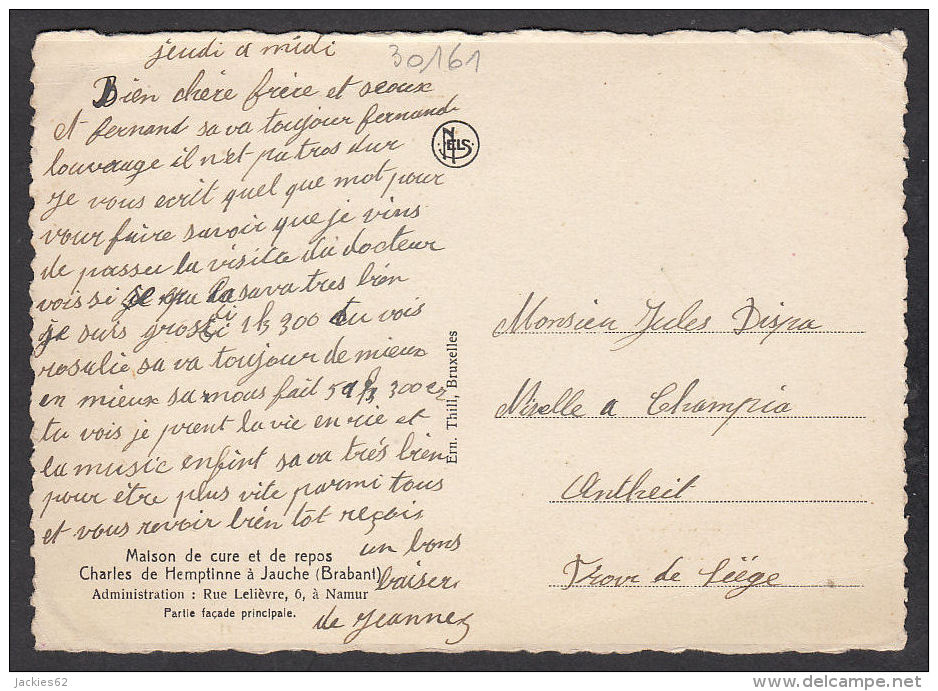 30161
jeudi a midi
Bien chére frére et seoux
et fernand sa va toujour fernand
louvrage il n'et pa tros dur
je vous ecrit quel que mot pour
vour faire savoir que je vins
de passer la visite du docteur
vois si sa va tres bién
je suis grossi 1 k 300 tu vois
rosalie sa va toujour de mieux
en mieux sa nous fait 5 k 300
tu vois je prent la vie en rie et
la music enfint sa va trés bien
pour étre plus vite parmi tous
et vous revoir bién tot reçois
un bons
baiser
de Jeanne
NELS
Ern. Thill, Bruxelles
Maison de cure et de repos
Charles de Hemptinne à Jauche (Brabant)
Administration : Rue Lelièvre, 6, à Namur
Partie façade principale.
Monsieu Jules Dispa
a Champia
Antheit
Prov de Liége
Jackies62
delcampe.net